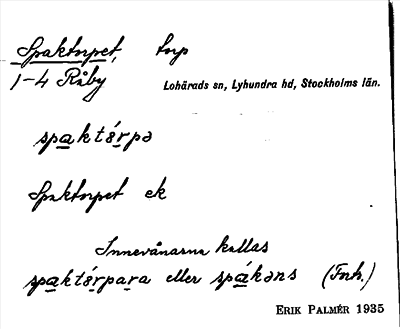 Spaktorpet, torp
1-4 Råby
Lohärads sn, Lyhundra hd, Stockholms län.
spaktórpə
Spaktorpet ek
Innevånarna kallas
spaktórpara eller spákəns (Fnh.)
ERIK PALMÉR 1935